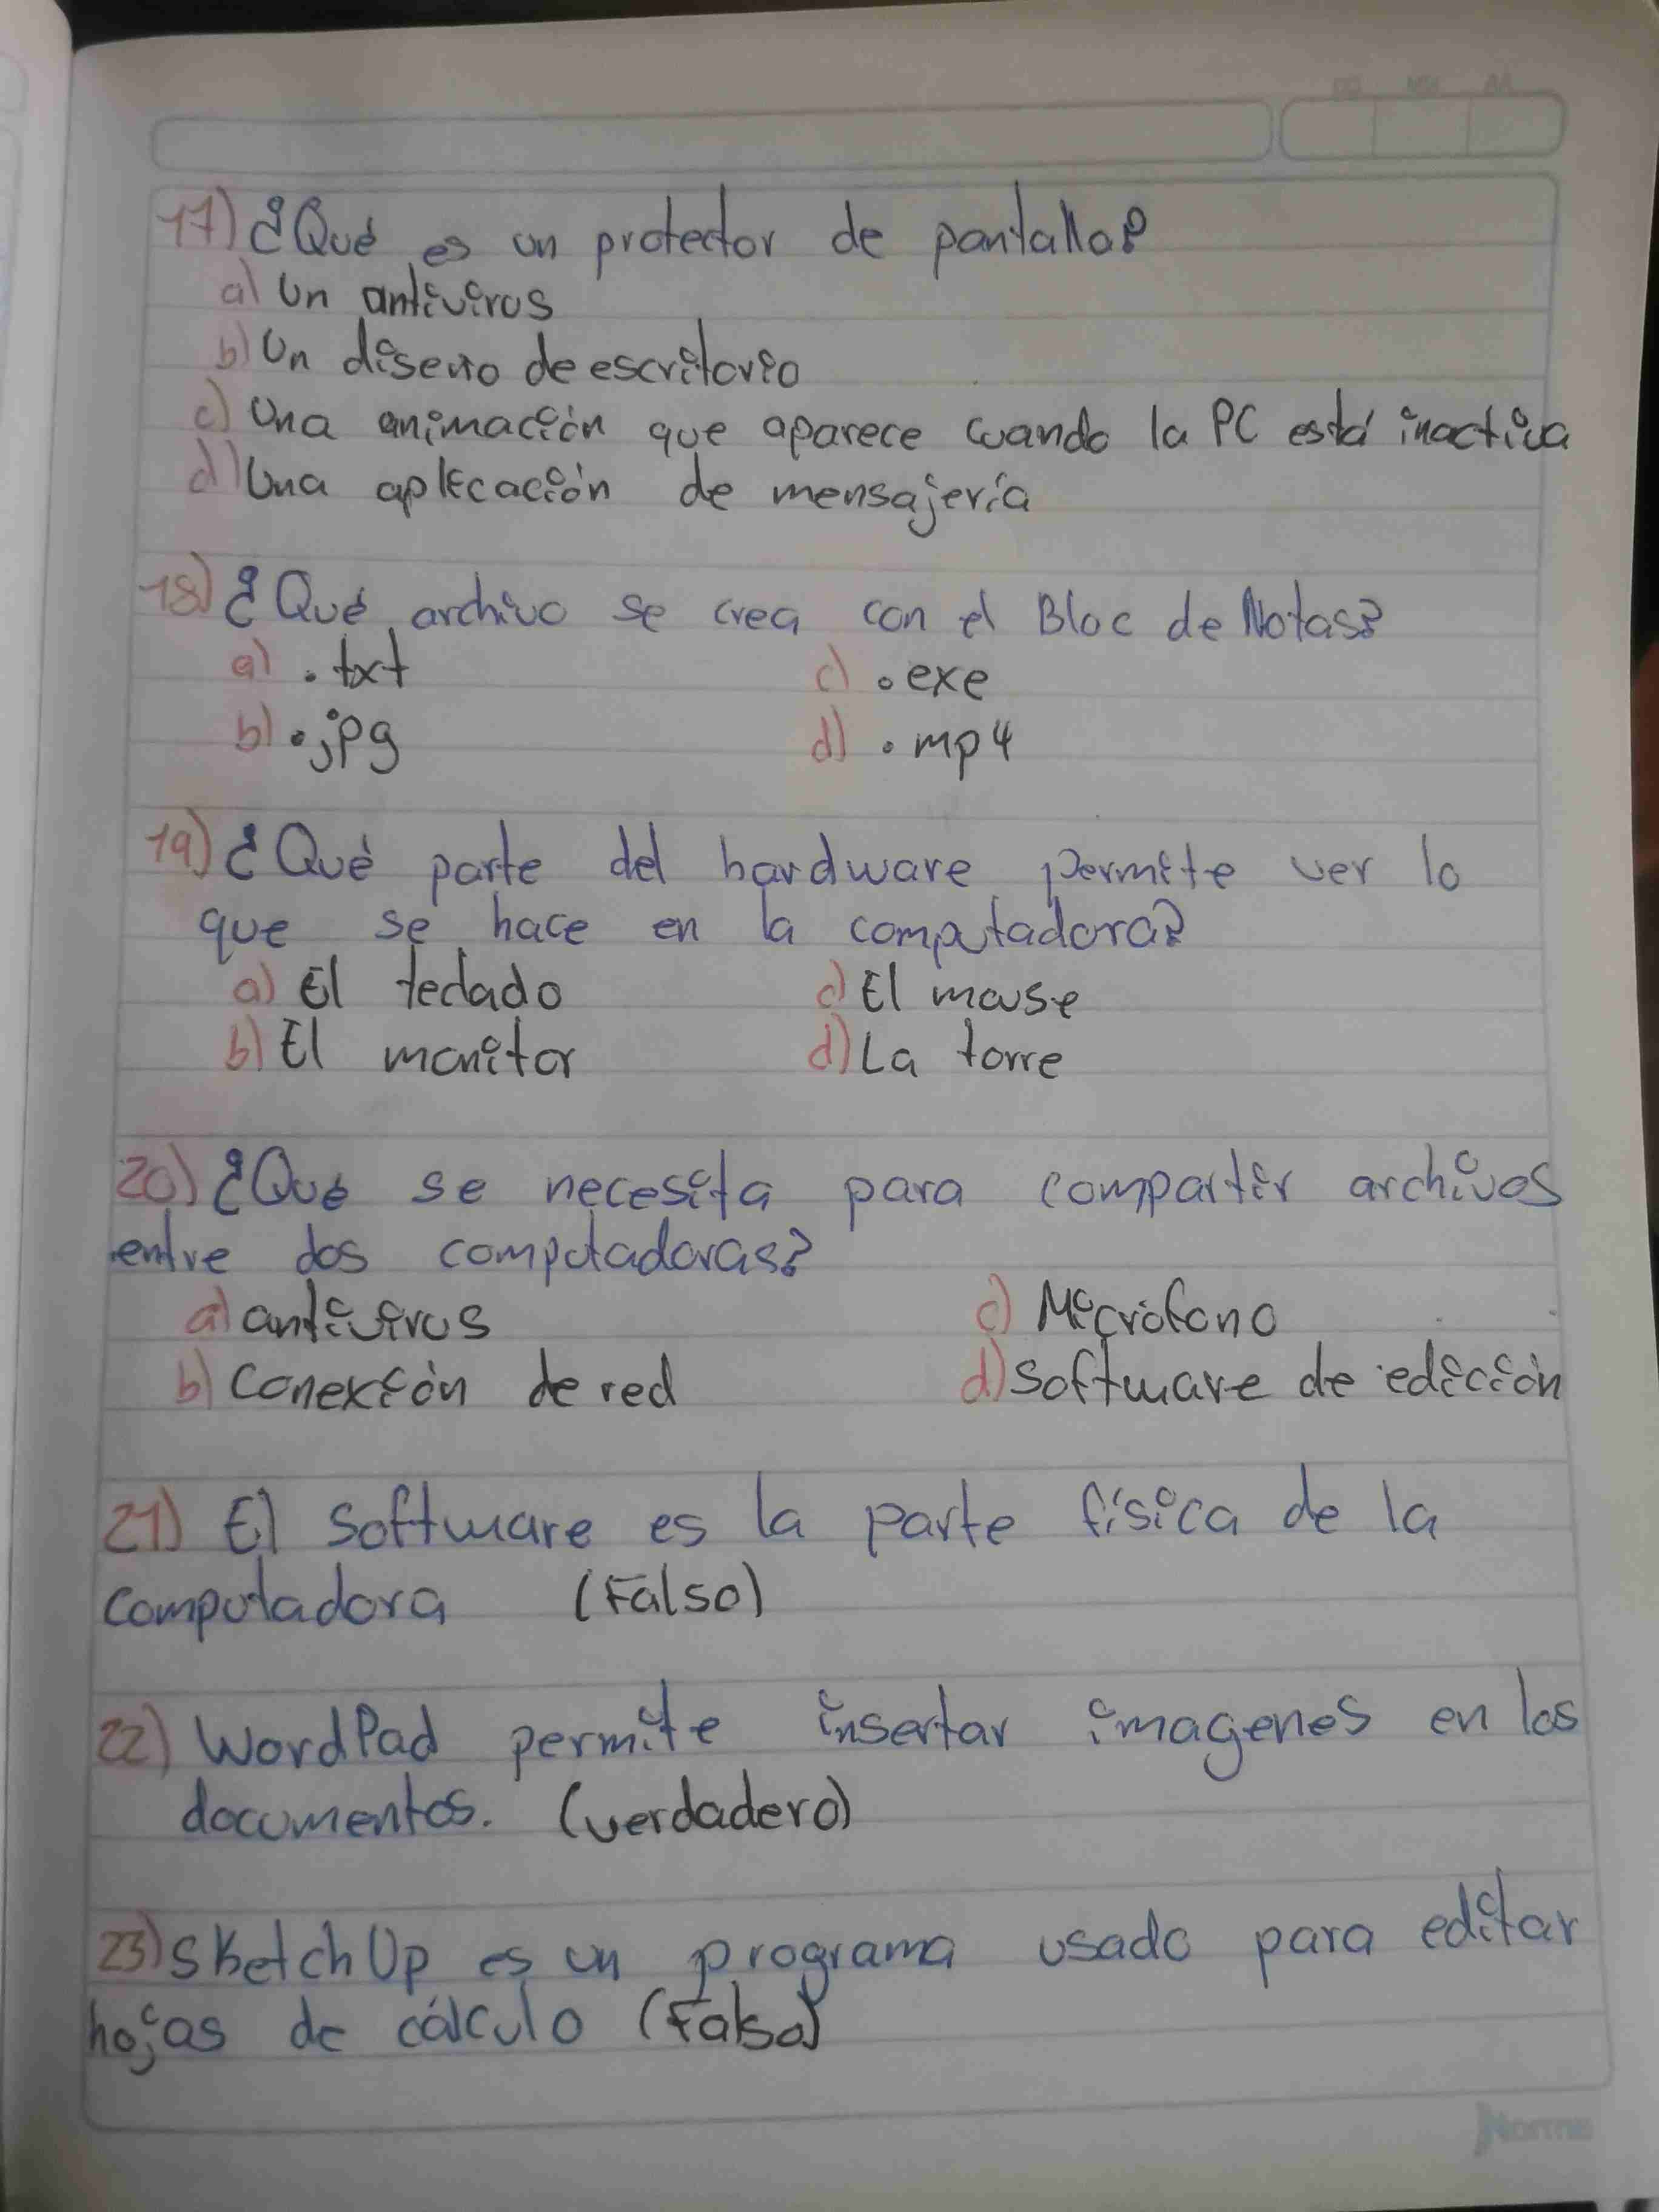 17) ¿Qué es un protector de pantalla?
a) Un antivirus
b) Un diseño de escritorio
c) Una animación que aparece cuando la PC está inactiva
d) Una aplicación de mensajería
18) ¿Qué archivo se crea con el Bloc de Notas?
a) .txt c) .exe
b) .jpg d) .mp4
19) ¿Qué parte del hardware permite ver lo
que se hace en la computadora?
a) El teclado c) El mouse
b) El monitor d) La torre
20) ¿Qué se necesita para compartir archivos
entre dos computadoras?
a) antivirus c) Micrófono
b) Conexión de red d) Software de edición
21) El software es la parte física de la
computadora (Falso)
22) WordPad permite insertar imagenes en los
documentos. (verdadero)
23) SketchUp es un programa usado para editar
hojas de cálculo (Falso)
Norma